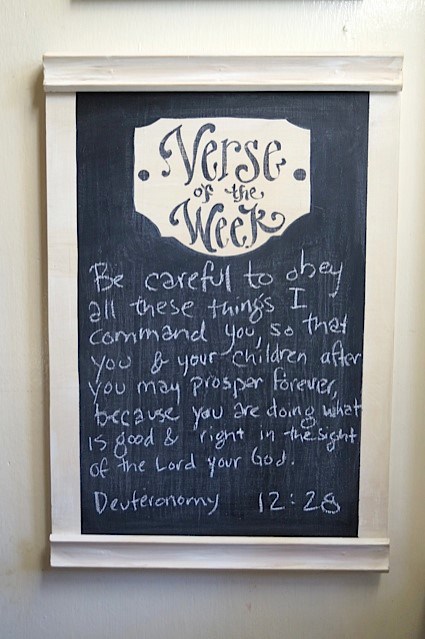 Verse
of the
Week
Be careful to obey
all these things I
command you, so that
you & your children after
you may prosper forever,
because you are doing what
is good & right in the sight
of the Lord your God.
Deuteronomy 12:28